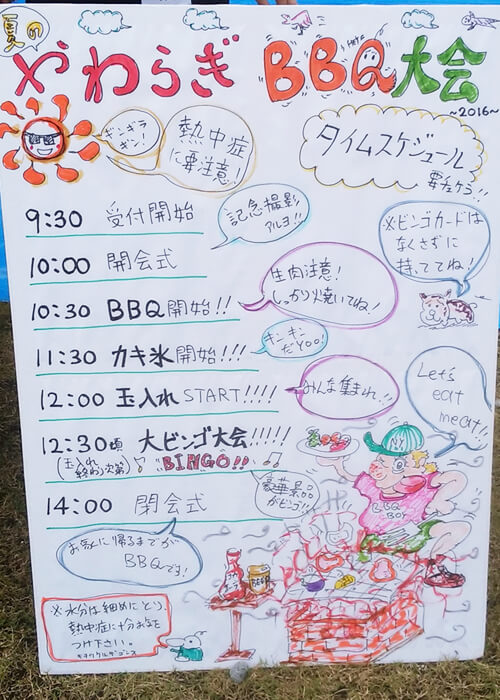 夏の
やわらぎ BBQ大会
~2016~
ギンギラ
ギン!
熱中症
に要注意!
タイムスケジュール
要チェケラ!!
9:30 受付開始
記念撮影
アルヨ!!
※ビンゴカードは
なくさずに
持っててね!
10:00 開会式
10:30 BBQ開始!!
生肉注意!
しっかり焼いてね!
11:30 カキ氷開始!!!
キンキン
だYOO!
12:00 玉入れSTART!!!!
みんな集まれ!!
Let's
eat
meat!!
12:30頃 大ビンゴ大会!!!!!
(玉入れ
終わり次第)
BINGO!!
豪華景品
がビンゴ!!
14:00 閉会式
お家に帰るまでが
BBQです!
NY
BBQ
BOY
BEER
※水分は細めにとり、
熱中症に十分お気を
つけ下さい。